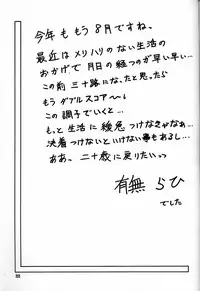 今年ももう8月ですね。
最近はメリハリのない生活の
おかげで月日の経つのが早い早い…
この前三十路になったと思ったら
もうダブルスコア〜。
この調子でいくと…
もっと生活に緩急つけなきゃなぁ…
決着つけないといけない事もあるし…
ああ。二十歳に戻りたいっ
有無らひ
でした